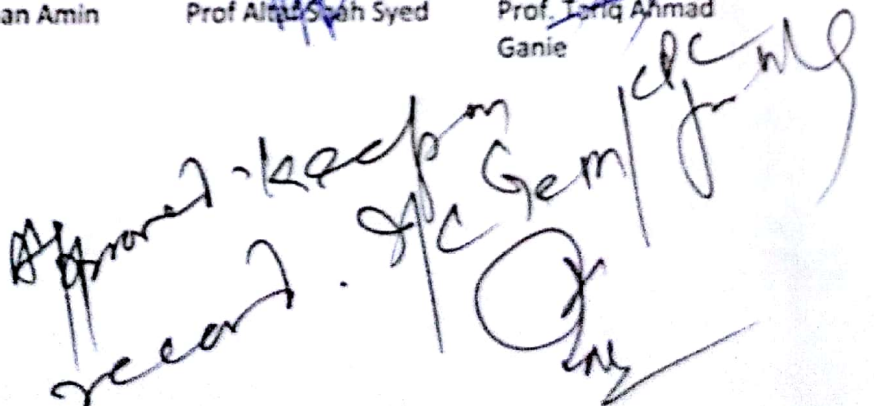 an Amin Prof Altaf Shah Syed Prof. Tariq Ahmad
Ganie
Approved. Keep on
record. I/C Gem/CPC for